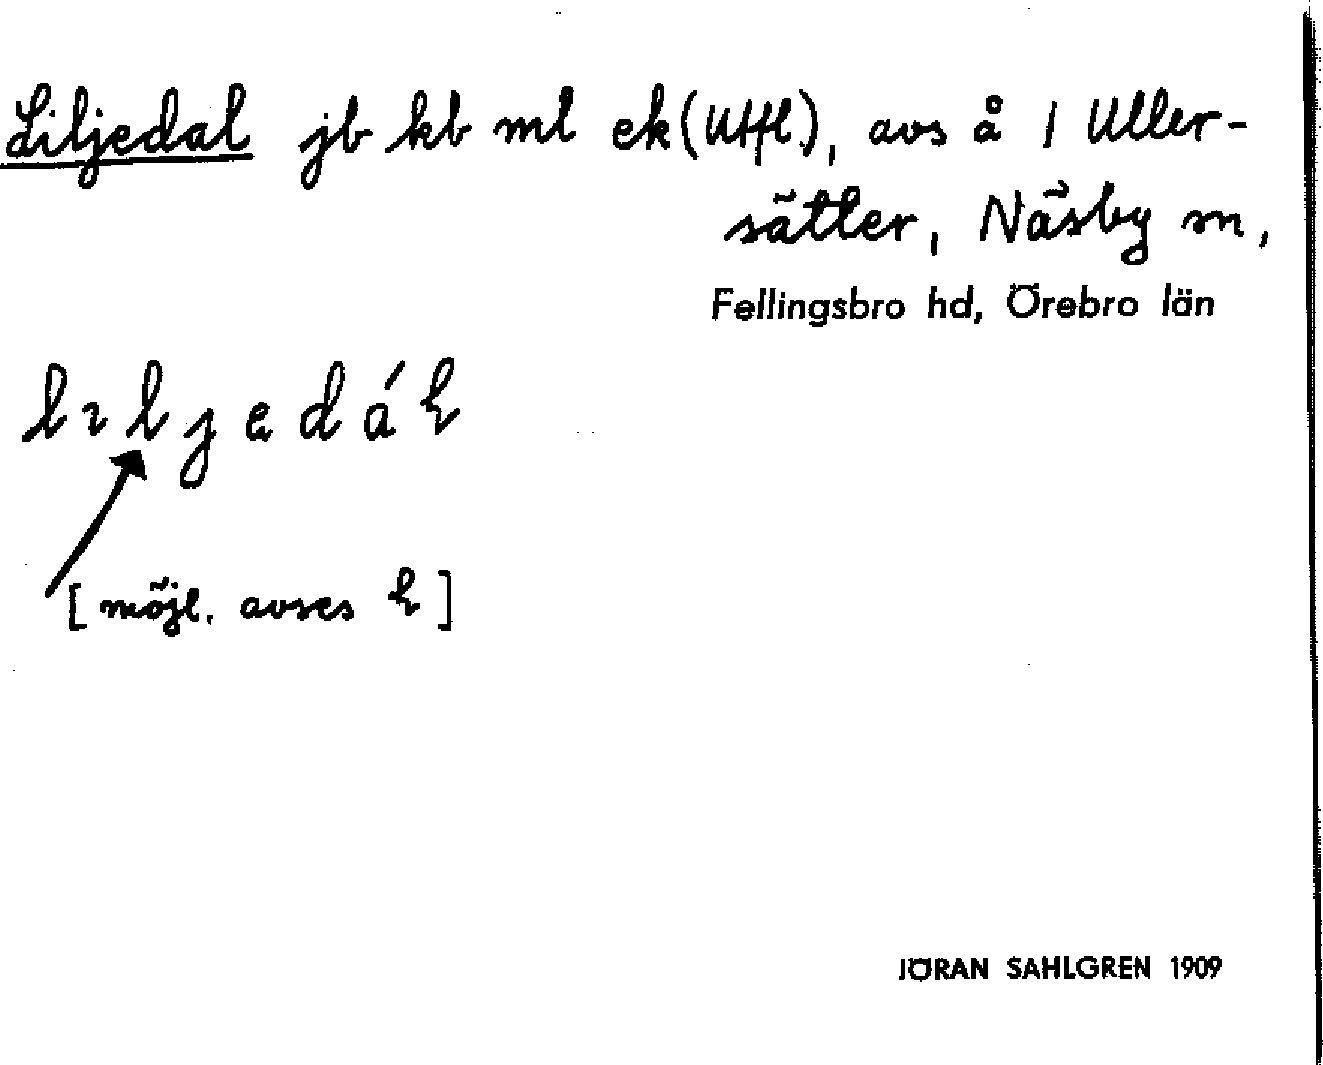 Liljedal jb kb ml ek (Utfl.), avs å 1 Uller-
sätter, Näsby sn,
Fellingsbro hd, Örebro län
lıljedál
[möjl. avses l]
JÖRAN SAHLGREN 1909